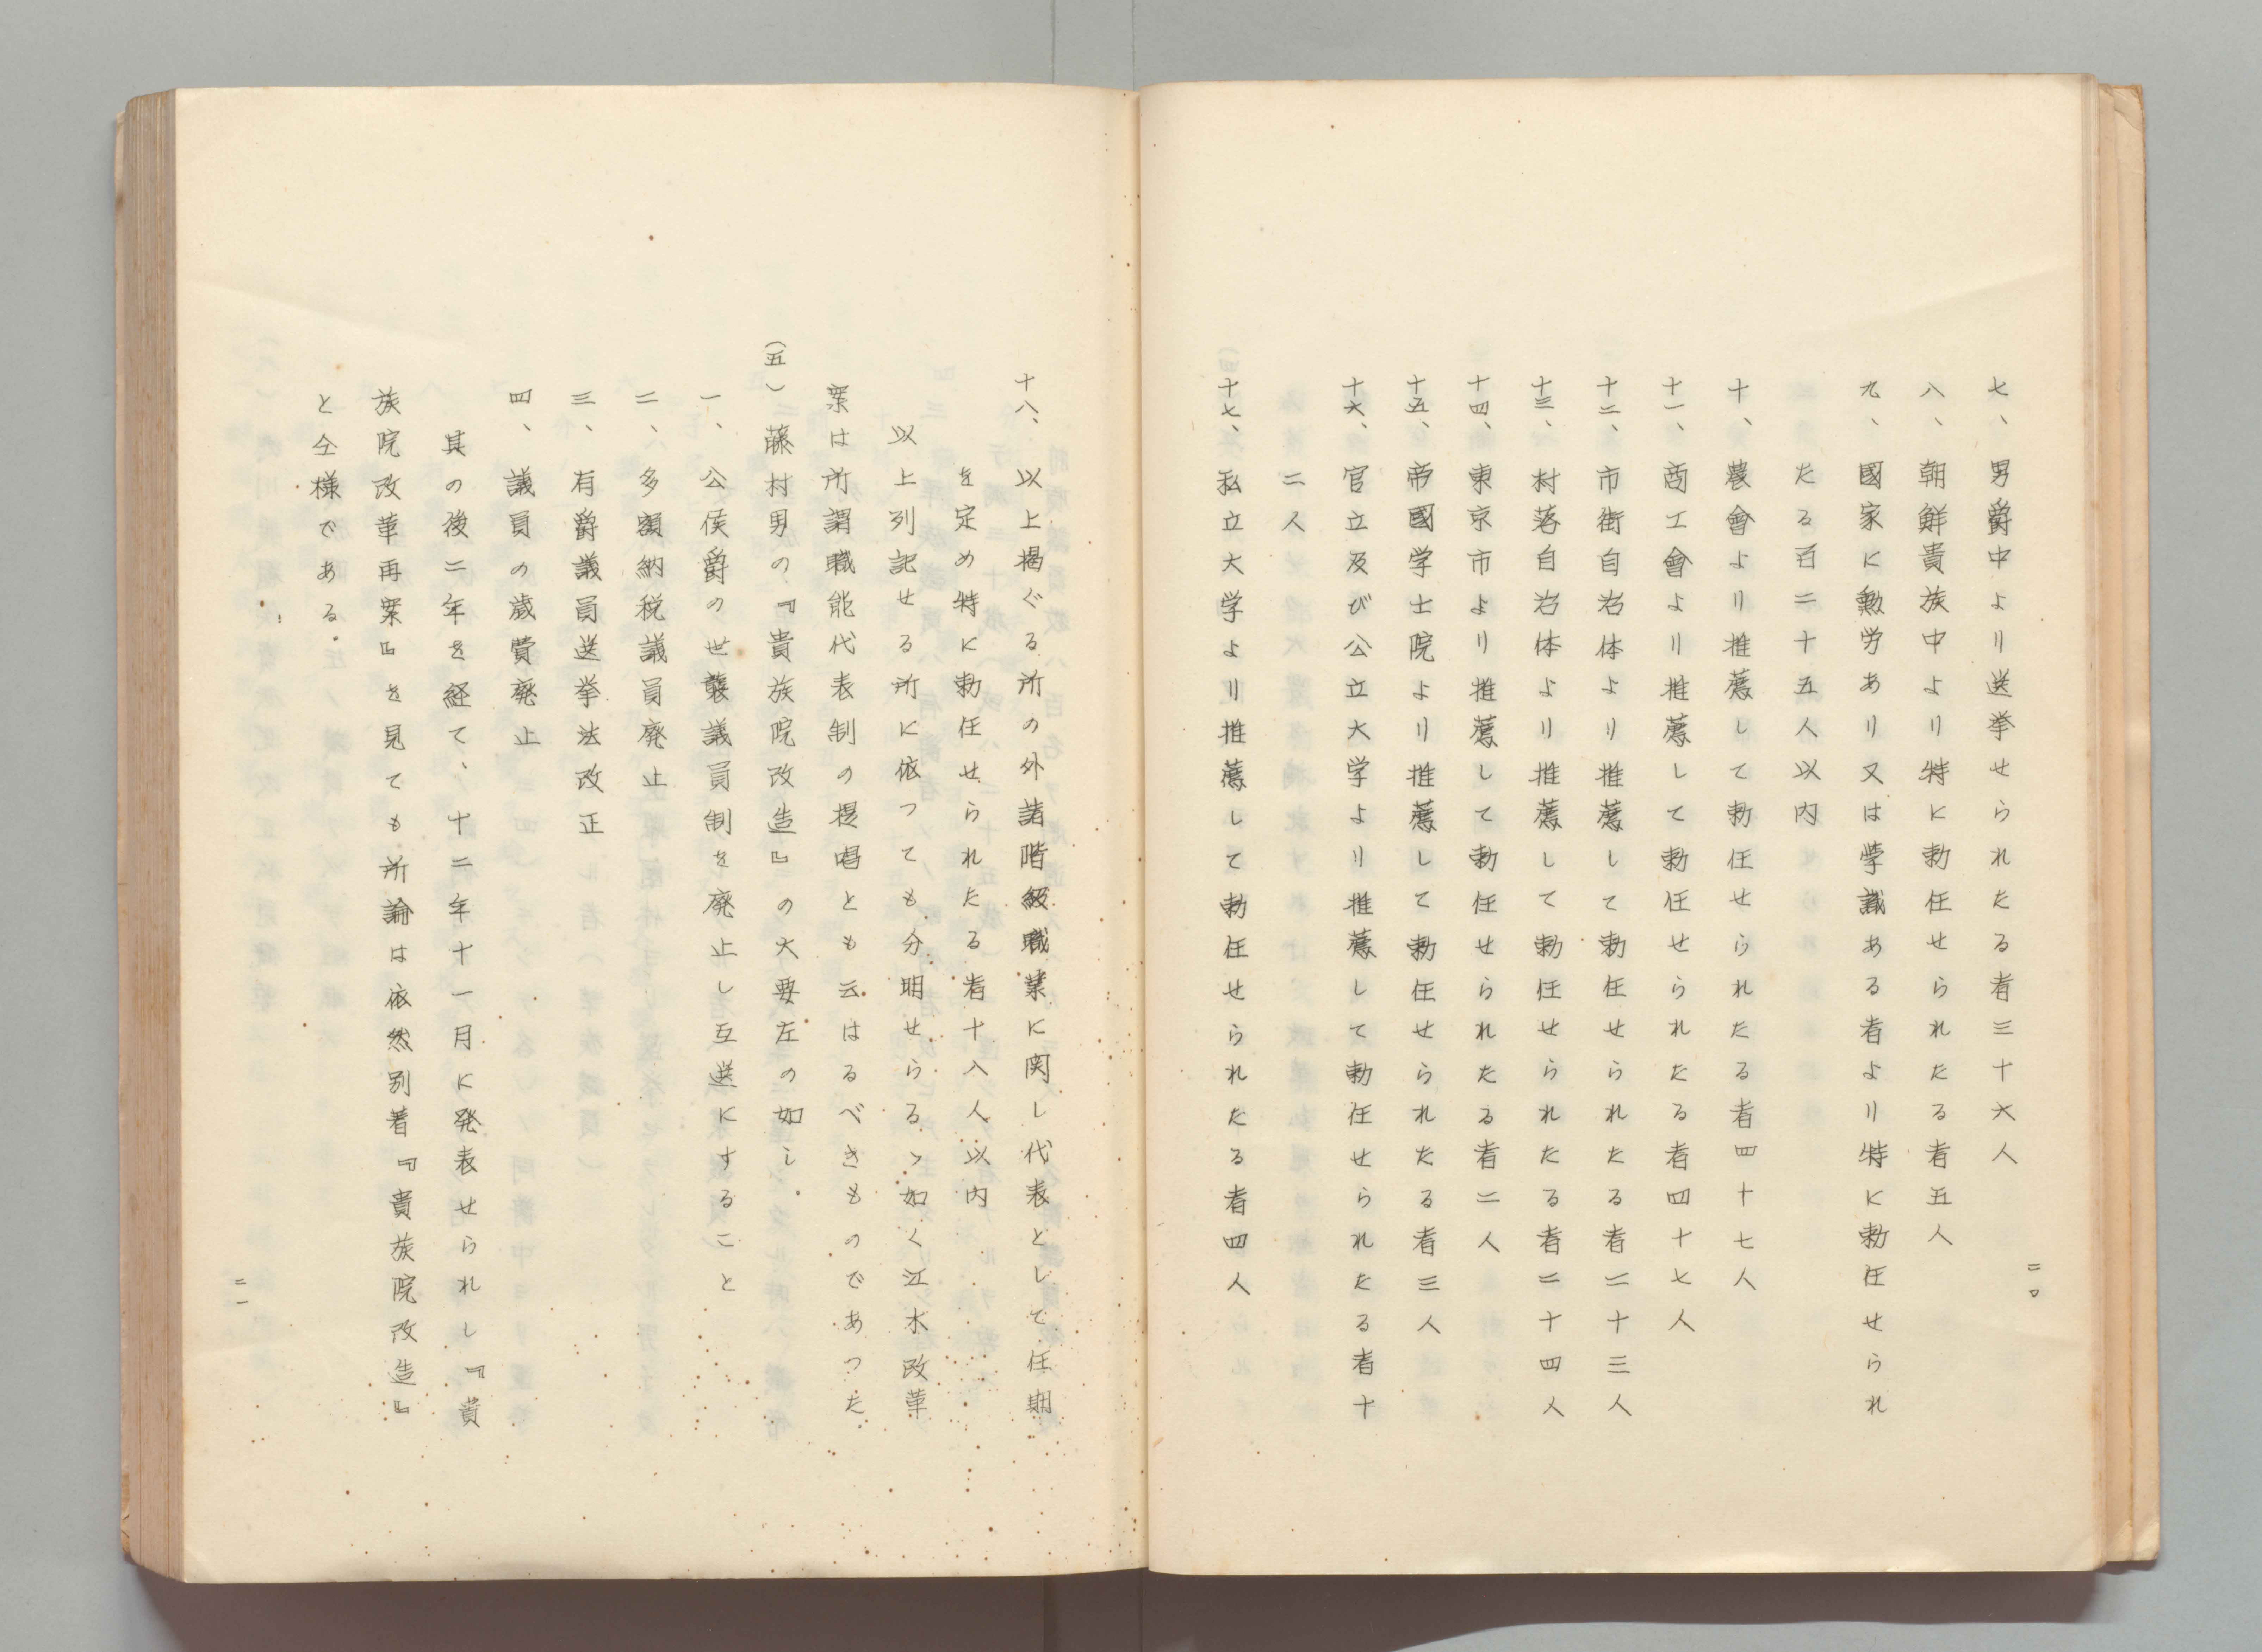 二〇
七、男爵中より送挙せられたる者三十六人
八、朝鮮貴族中より特に勅任せられたる者五人
九、國家に勲労あり又は学識ある者より特に勅任せられ
たる百二十五人以内
十、農會より推薦して勅任せられたる者四十七人
十一、商工會より推薦して勅任せられたる者四十七人
十二、市街自治体より推薦して勅任せられたる者二十三人
十三、村落自治体より推薦して勅任せられたる者二十四人
十四、東京市より推薦して勅任せられたる者二人
十五、帝國学士院より推薦して勅任せられたる者三人
十六、官立及び公立大学より推薦して勅任せられたる者十
二人
十七、私立大学より推薦して勅任せられたる者四人
十八、以上掲ぐる所の外諸階級職業に関し代表として任期
を定め特に勅任せられたる者十八人以内
以上列記せる所に依つても分明せらるゝ如く江木改革
案は所謂職能代表制の提唱とも云はるべきものであつた
(五)藤村男の『貴族院改造』の大要左の如し。
一、公侯爵の世襲議員制を廃止し互選にすること
二、多額納税議員廃止
三、有爵議員送挙法改正
四、議員の歳費廃止
其の後二年を経て、十二年十一月に発表せられし『貴
族院改革再案』を見ても所論は依然別著『貴族院改造』
と仝様である。
二一